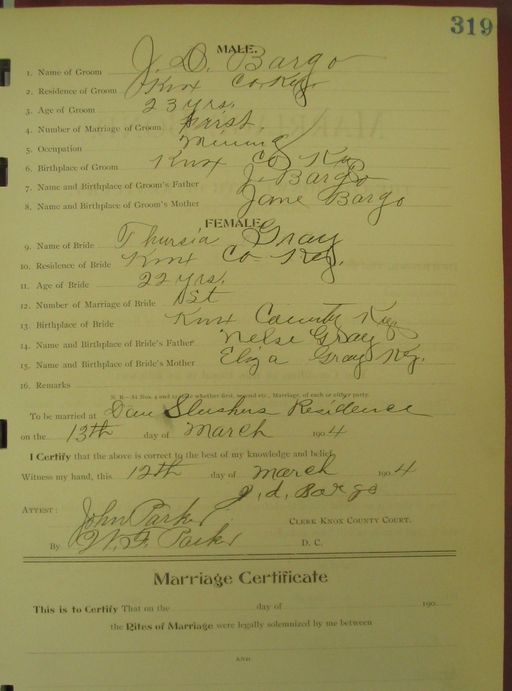 319
MALE.
1. Name of Groom J. D. Bargo
2. Residence of Groom Knox Co. Ky.
3. Age of Groom 23 yrs.
4. Number of Marriage of Groom First
5. Occupation Mining
6. Birthplace of Groom Knox Co Ky
7. Name and Birthplace of Groom's Father J. Bargo
8. Name and Birthplace of Groom's Mother Jane Bargo
FEMALE.
9. Name of Bride Thursia Gray
10. Residence of Bride Knox Co Ky.
11. Age of Bride 22 yrs.
12. Number of Marriage of Bride 1st
13. Birthplace of Bride Knox County Ky
14. Name and Birthplace of Bride's Father Nelse Gray
15. Name and Birthplace of Bride's Mother Eliza Gray Ky.
16. Remarks
N. B.—At Nos. 4 and 12 state whether first, second etc., Marriage, of each or either party.
To be married at Dan Slushers Residence
on the 13th day of March 1904
I Certify that the above is correct to the best of my knowledge and belief.
Witness my hand, this 12th day of March 1904
J. d. Bargo
ATTEST: John Parker CLERK KNOX COUNTY COURT.
By W. F. Parker D. C.
Marriage Certificate
This is to Certify That on the day of 190
the Rites of Marriage were legally solemnized by me between
AND